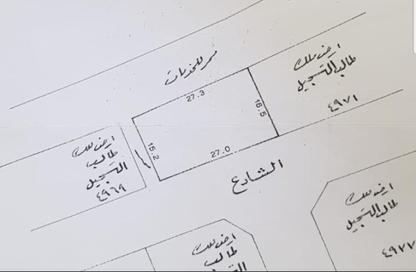 ممر للخدمات
27.3
ارض ملك
طالب التسجيل
٤٩٧١
16.5
16.2
27.0
ارض ملك
طالب
التسجيل
٤٩٦٩
الشارع
ارض ملك
طالب
التسجيل
ارض ملك
طالب التسجيل
٤٩٧٧